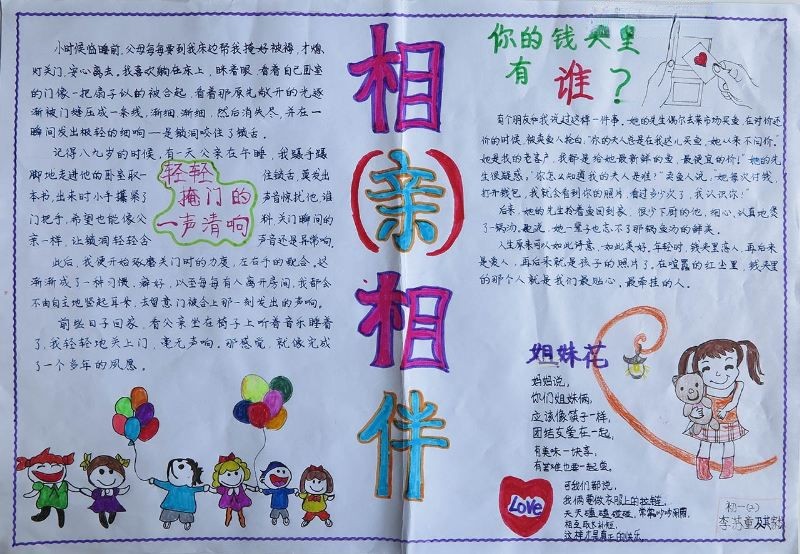 小时候临睡前,父母每每要到我床边帮我掩好被褥,才熄
灯关门,安心离去。我喜欢躺在床上,眯着眼,看着自己卧室
的门像一把扇子似的被合起,看着那原先敞开的光逐
渐被门缝压成一条线,渐细,渐细,然后消失尽,并在一
瞬间发出极轻的细响一是锁洞咬住了锁舌。
记得八九岁的时候,有一天父亲在午睡,我蹑手蹑
脚地走进他的卧室取一
本书,出来时小手攥紧了
门把手,希望也能像父
亲一样,让锁洞轻轻含
住锁舌,莫发出
声音惊扰他,谁
料,关门瞬间的
声音还是异常响。
轻轻
掩门的
一声清响
此后,我便开始琢磨关门时的力度,左右手的配合。这
渐渐成了一种习惯,癖好,以至每每有人离开房间,我都会
不由自主地竖起耳朵,去留意门被合上那一刻发出的声响。
前些日子回家,看父亲坐在椅子上听着音乐睡着
了,我轻轻地关上门,毫无声响。那感觉,就像完成
了一个多年的夙愿。
相
(亲)
相
伴
你的钱夹里
有谁?
有个朋友和我说过这样一件事。她的先生偶尔去菜市场买鱼,在讨价还
价的时候,被卖鱼人抢白:"你的夫人总是在我这儿买鱼,她从来不问价。
她是我的老客户,我都是给她最新鲜的鱼,最便宜的价!"她的先
生很疑惑:"你怎么知道我的夫人是谁?"卖鱼人说:"她每次付钱
打开钱包,我就会看到你的照片,看过多少次了,我认识你!"
后来,她的先生拎着鱼回到家,很少下厨的他,细心、认真地煲
了一锅汤。她说,她一辈子也忘不了那锅鱼汤的鲜美。
人生原来可以如此诗意,如此美好。年轻时,钱夹里是恋人,再后来
是爱人,再后来就是孩子的照片了。在喧嚣的红尘里,钱夹里
的那个人就是我们最贴心、最牵挂的人。
姐妹花
妈妈说,
你们姐妹俩,
应该像筷子一样,
团结友爱在一起,
有美味一块尝,
有苦难也要一起度。
可我们都说,
我俩要做衣服上的拉链,
天天磕磕碰碰,常常吵吵闹闹,
相互取长补短,
这样才是真正的快乐。
Love
初一(2)
李 童及其家长